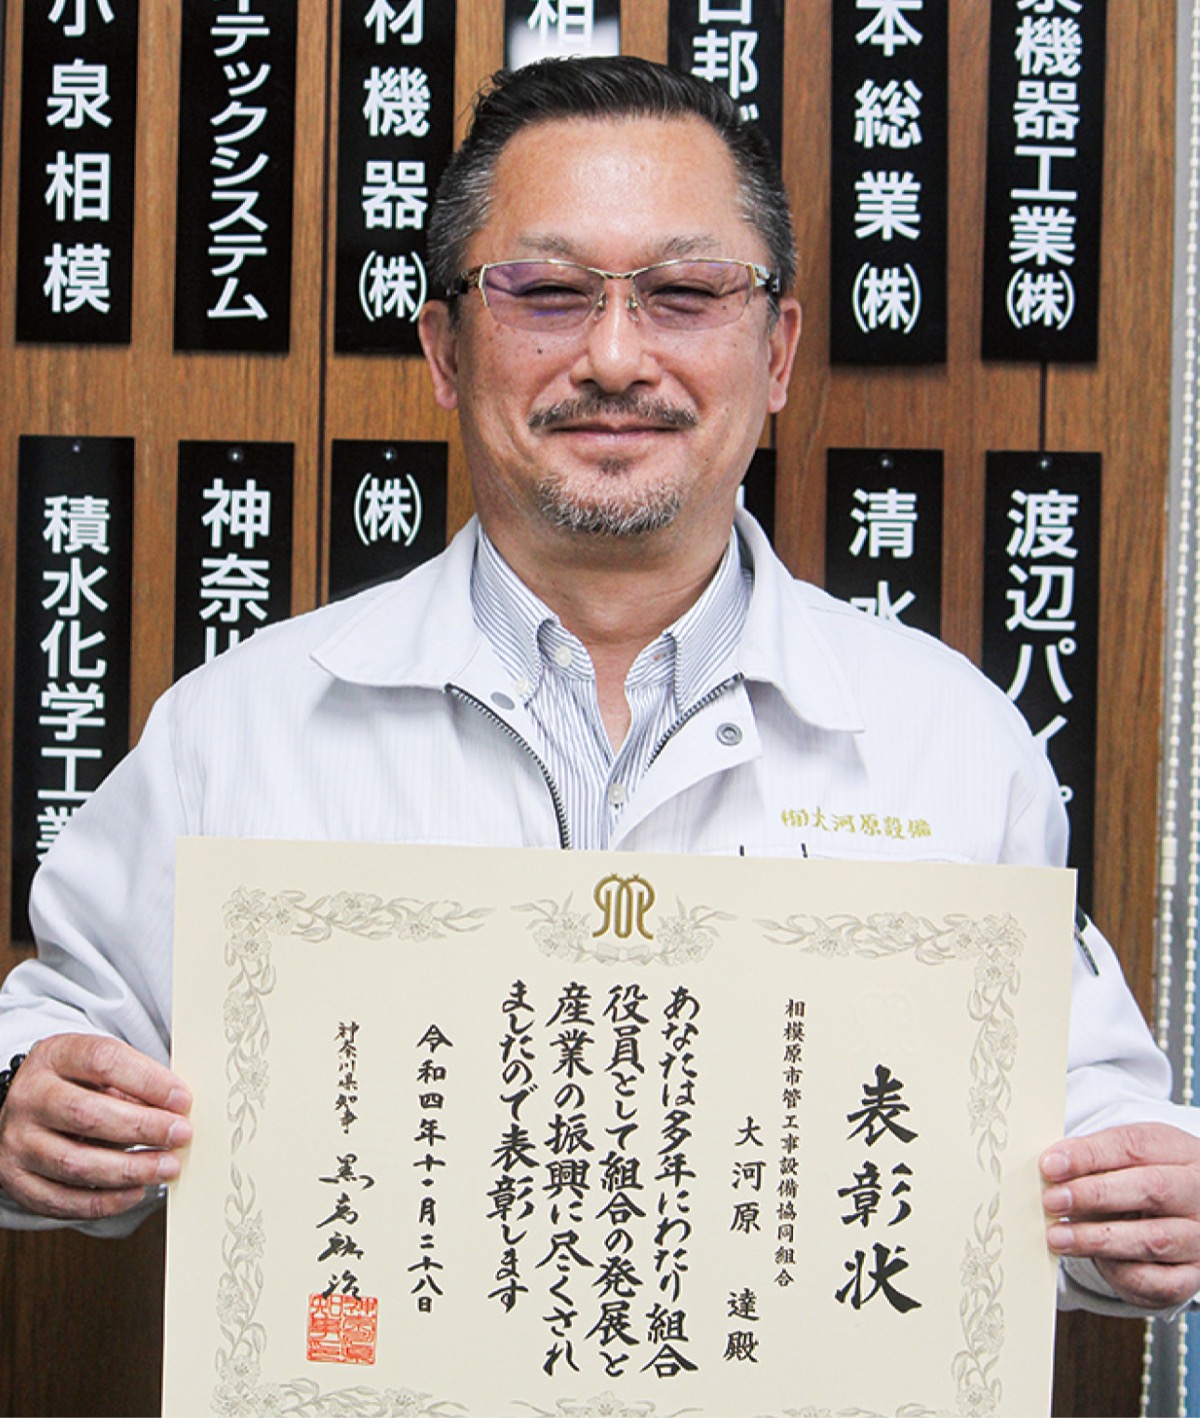 泉機器工業㈱
本総業㈱
邦
相
材機器㈱
テックシステム
小泉相模
渡辺パイプ
清水
㈱
神奈川
積水化学工業
㈲大河原設備
表彰状
相模原市管工事設備協同組合
大河原 達殿
あなたは多年にわたり組合
役員として組合の発展と
産業の振興に尽くされ
ましたので表彰します
令和四年十一月二十八日
神奈川県知事 黒岩祐治